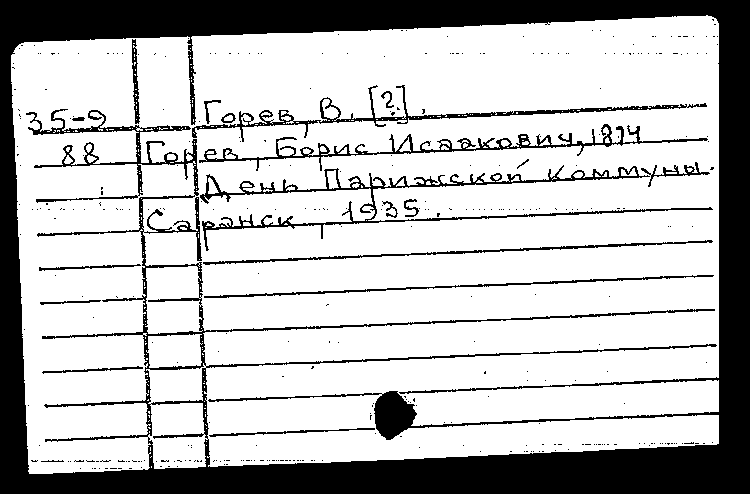 35-9 Горев, В. [?].
88 Горев, Борис Исаакович, 1874
День Парижской коммуны.
Саранск, 1935.